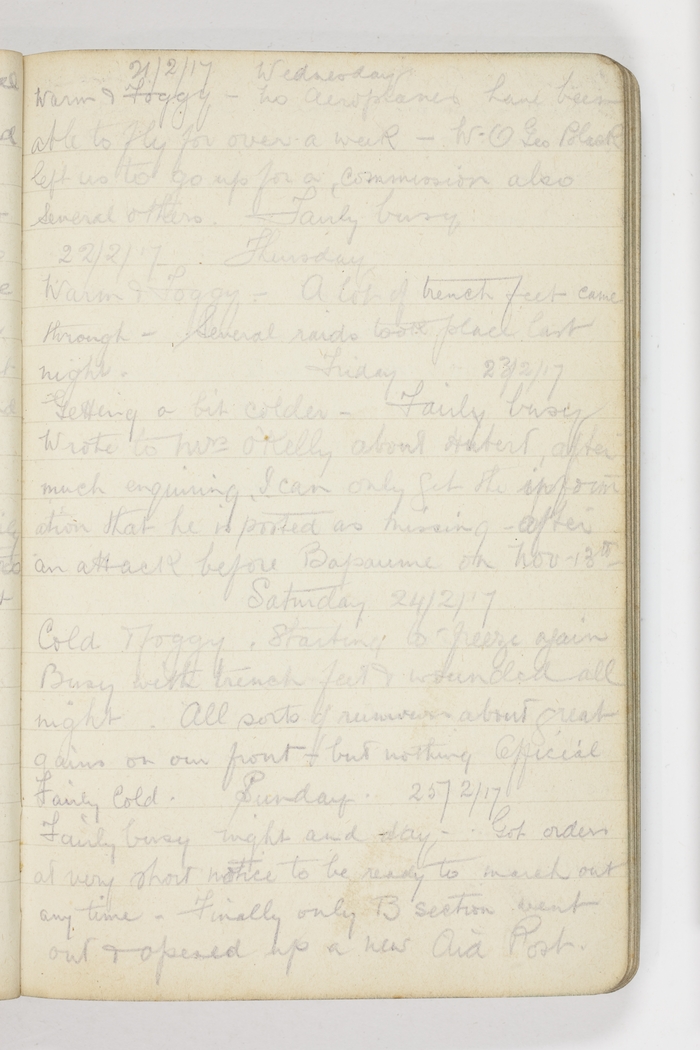 21/2/17 Wednesday
Warm & Foggy - No Aeroplanes have been
able to fly for over a week - W.O Geo Black
left us to go up for a commission also
several others. Fairly busy
22/2/17 Thursday
Warm & Foggy - A lot of trench feet came
through - Several raids took place last
night. Friday 23/2/17
Getting a bit colder - Fairly busy
Wrote to Mrs O'Kelly about Hubert, after
much enquiring I can only get the inform
ation that he is posted as missing - after
an attack before Bapaume on Nov-13th-
Saturday 24/2/17
Cold & foggy. Starting to freeze again
Busy with trench feet & wounded all
night. All sorts of rumours about great
gains on our front - but nothing Official
Fairly Cold. Sunday 25/2/17
Fairly busy night and day - Got orders
at very short notice to be ready to march out
any time - Finally only B section went
out & opened up a new Aid Post.